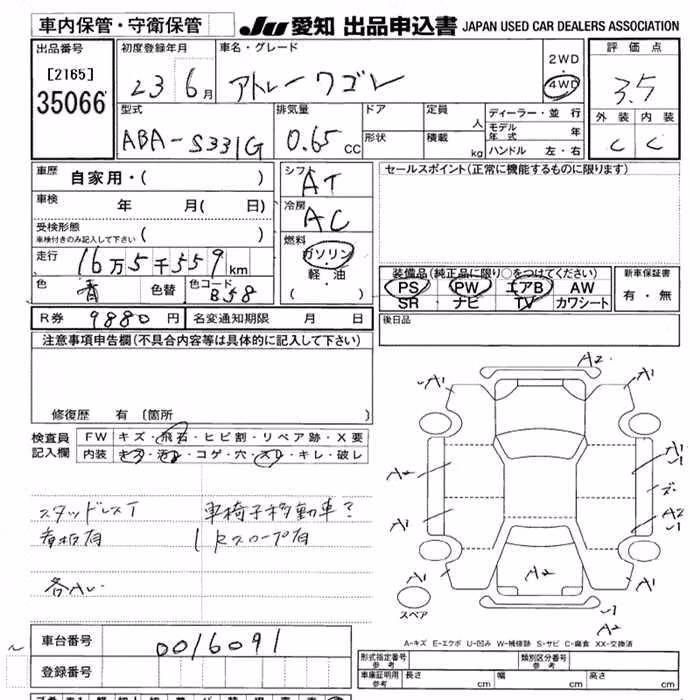 車内保管・守衛保管 JU 愛知 出品申込書 JAPAN USED CAR DEALERS ASSOCIATION
出品番号 初度登録年月 車名・グレード 2WD 評価点
[2165] 23 6月 アトレーワゴン 4WD 3.5
35066 型式 排気量 ドア 定員 人 ディーラー・並行 外装 内装
ABA-S331G 0.65 CC 形状 積載 kg モデル年式 年 C C
ハンドル 左・右
車歴 自家用・( ) シフト AT セールスポイント(正常に機能するものに限ります)
車検 年 月( 日) 冷房 AC
受検形態 ( )
車検付きのみ記入して下さい
燃料 ガソリン・軽・油 ( )
走行 16万5千559km
色 色替 色コード B58
装備品(純正品に限り○をつけてください) 新車保証書
PS PW エアB AW 有・無
SR ナビ TV カワシート
R券 9880円 名変通知期限 月 日 後日品
注意事項申告欄(不具合内容等は具体的に記入して下さい)
修復歴 有 〔箇所 〕
検査員 FW キズ・飛石・ヒビ割・リペア跡・X要
記入欄 内装 キズ・汚れ・コゲ・穴・スレ・キレ・破レ
スタッドレスT 車椅子移動車?
看板有 Rスロープ有
各AL
A2
A1 A1
A2 A1
A1 A2
A2
A1 A1
スペア
A2
A-キズ E-エクボ U-凹み W-補修跡 S-サビ C-腐食 XX-交換済
車台番号 0016091
登録番号
形式指定番号 参考 類別区分番号 参考
車庫証明用 参考 長さ cm 幅 cm 高さ cm